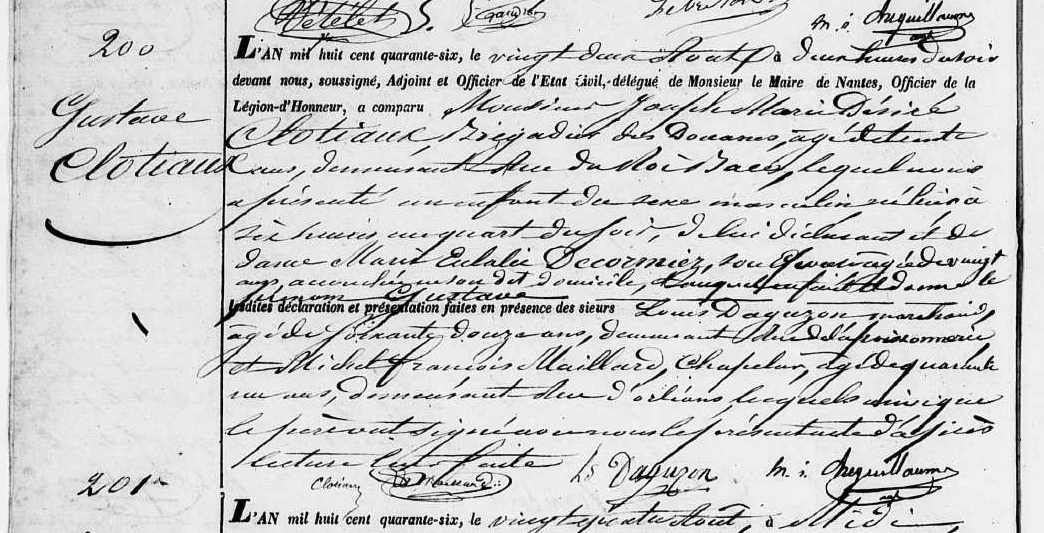 200
Gustave
Clotiaux
L'AN mil huit cent quarante-six, le vingt deux Aout, à deux heures du soir
devant nous, soussigné, Adjoint et Officier de l'Etat Civil, délégué de Monsieur le Maire de Nantes, Officier de la
Légion-d'Honneur, a comparu Monsieur Joseph Marie Désiré
Clotiaux, Brigadier des Douanes, agé de trente
ans, demeurant Rue du Roi Baco, lequel nous
a présenté un enfant du sexe masculin né hier à
six heures un quart du soir, de lui déclarant et de
dame Marie Eulalie Decormiez, son Epouse agée de vingt
ans, accouchée en son dit domicile, auquel enfant il donne le
prénom Gustave
lesdites déclaration et présentation faites en présence des sieurs Louis Daguzon marchand,
agé de soixante douze ans, demeurant rue de la poissonnerie
et Michel françois Maillard, Chapelier, agé de quarante
un ans, demeurant rue d'orléans, lesquels ainsi que
le père ont signé avec nous le présent acte d'après
lecture leur faite
Clotiaux Ls Daguzon m. i. Cheguillaume
adj
201
L'AN mil huit cent quarante-six, le vingt quatre Aout, à Midi,